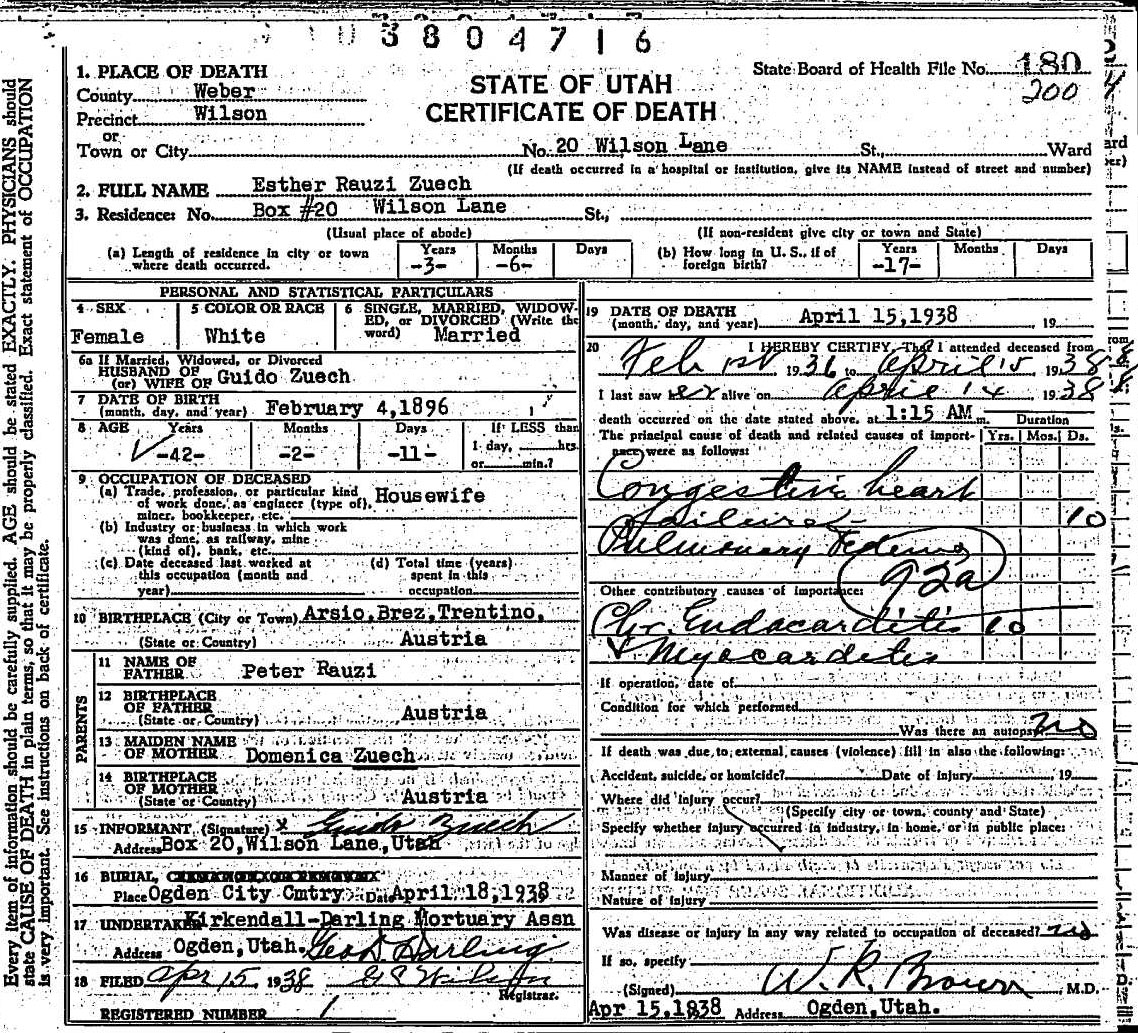 3804716
State Board of Health File No. 180
200
STATE OF UTAH
CERTIFICATE OF DEATH
1. PLACE OF DEATH
County Weber
Precinct Wilson
or
Town or City No. 20 Wilson Lane St., Ward
(If death occurred in a hospital or institution, give its NAME instead of street and number)
2. FULL NAME Esther Rauzi Zuech
3. Residence: No. Box #20 Wilson Lane St.,
(Usual place of abode) (If non-resident give city or town and State)
(a) Length of residence in city or town where death occurred. Years -3- Months -6- Days
(b) How long in U. S., if of foreign birth? Years -17- Months Days
PERSONAL AND STATISTICAL PARTICULARS
4 SEX Female
5 COLOR OR RACE White
6 SINGLE, MARRIED, WIDOWED, or DIVORCED (Write the word) Married
6a If Married, Widowed, or Divorced
HUSBAND OF
(or) WIFE OF Guido Zuech
7 DATE OF BIRTH
(month, day, and year) February 4,1896
8 AGE Years -42- Months -2- Days -11- If LESS than 1 day, hrs. or min.?
9 OCCUPATION OF DECEASED
(a) Trade, profession, or particular kind of work done, as engineer (type of), miner, bookkeeper, etc. Housewife
(b) Industry or business in which work was done, as railway, mine (kind of), bank, etc.
(c) Date deceased last worked at this occupation (month and year)
(d) Total time (years) spent in this occupation
10 BIRTHPLACE (City or Town) Arsio,Brez,Trentino,
(State or Country) Austria
PARENTS
11 NAME OF FATHER Peter Rauzi
12 BIRTHPLACE OF FATHER
(State or Country) Austria
13 MAIDEN NAME OF MOTHER Domenica Zuech
14 BIRTHPLACE OF MOTHER
(State or Country) Austria
15 INFORMANT (Signature) x Guido Zuech
Address Box 20,Wilson Lane,Utah
16 BURIAL, CREMATION OR REMOVAL
Place Ogden City Cmtry Date April 18,1938
17 UNDERTAKER Kirkendall-Darling Mortuary Assn
Address Ogden,Utah. Geo D Darling
18 FILED Apr 15 1938
Registrar.
REGISTERED NUMBER 1
19 DATE OF DEATH
(month, day, and year) April 15,1938 19
20 I HEREBY CERTIFY, That I attended deceased from
Feb 1st 1936 to April 15 1938
I last saw her alive on April 14 1938
death occurred on the date stated above, at 1:15 AM m.
The principal cause of death and related causes of importance were as follows: Duration Yrs. Mos. Ds.
Congestive heart
failure 10
Pulmonary Edema
92a
Other contributory causes of importance:
Chr. Endocarditis 10
& Myocarditis
If operation, date of
Condition for which performed
Was there an autopsy no
If death was due to external causes (violence) fill in also the following:
Accident, suicide, or homicide? Date of injury 19
Where did injury occur?
(Specify city or town, county and State)
Specify whether injury occurred in industry, in home, or in public place:
Manner of injury
Nature of injury
Was disease or injury in any way related to occupation of deceased? no
If so, specify
(Signed) W. R. Brown M.D.
Apr 15,1938 Address Ogden,Utah.
Every item of information should be carefully supplied. AGE should be stated EXACTLY. PHYSICIANS should
state CAUSE OF DEATH in plain terms, so that it may be properly classified. Exact statement of OCCUPATION
is very important. See instructions on back of certificate.